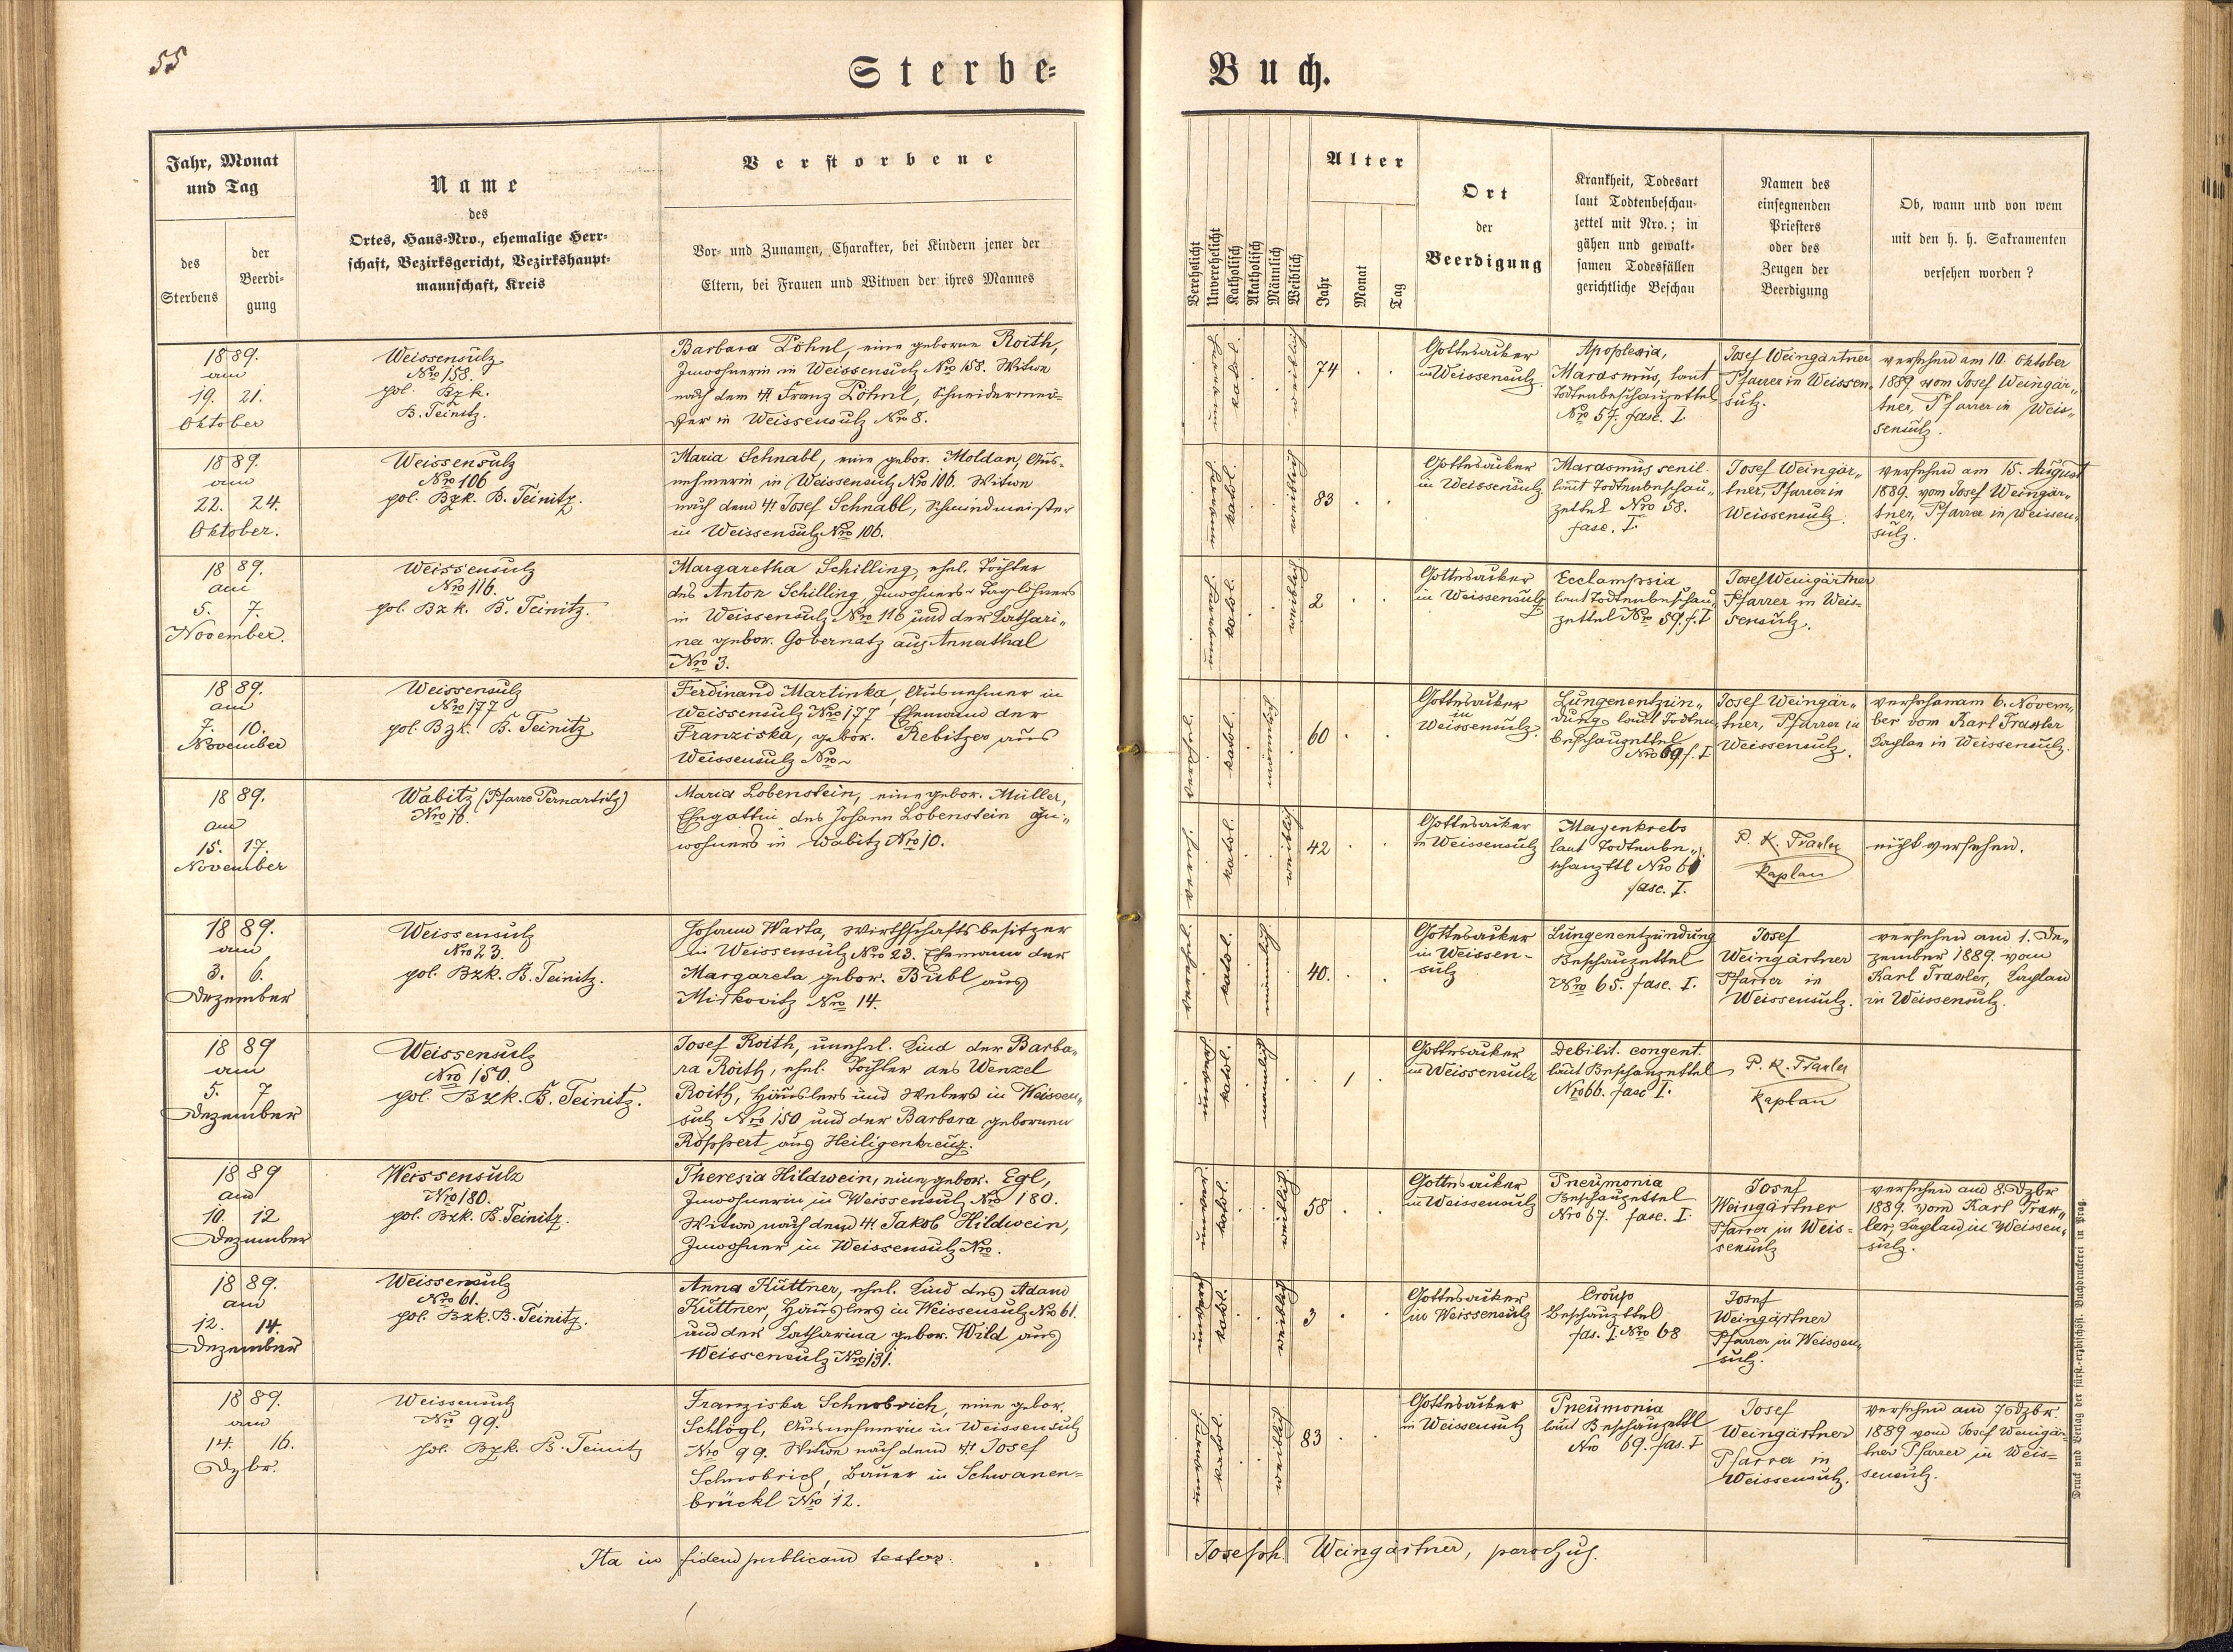 55
Sterbe-
Buch.
Jahr, Monat
und Tag
des
Sterbens
der
Beerdi-
gung
Name
des
Ortes, Haus-Nro., ehemalige Herr-
schaft, Bezirksgericht, Bezirkshaupt-
mannschaft, Kreis
Verstorbene
Vor- und Zunamen, Charakter, bei Kindern jener der
Eltern, bei Frauen und Witwen der ihres Mannes
Verehelicht
Unverehelicht
Katholisch
Akatholisch
Männlich
Weiblich
Alter
Jahr
Monat
Tag
Ort
der
Beerdigung
Krankheit, Todesart
laut Todtenbeschau-
zettel mit Nro.; in
gähen und gewalt-
samen Todesfällen
gerichtliche Beschau
Namen des
einsegnenden
Priesters
oder des
Zeugen der
Beerdigung
Ob, wann und von wem
mit den h. h. Sakramenten
versehen worden?
1889.
am
19. 21.
Oktober
Weissensulz
Nro 158.
pol. Bzk.
B. Teinitz.
Barbara Löhnl, eine geborne Roith,
Inwohnerin in Weissensulz Nro 158. Witwe
nach dem # Franz Löhnl, Schneidermei-
ster in Weissensulz Nro 8.
kathol.
weiblich
74
Gottesacker
in Weissensulz.
Apoplexia,
Marasmus, laut
Todtenbeschauzettel
Nro 57. fasc. I.
Josef Weingärtner
Pfarrer in Weissen-
sulz.
versehen am 10. Oktober
1889 vom Josef Weingär-
tner, Pfarrer in Weis-
sensulz.
1889.
am
22. 24.
Oktober.
Weissensulz
Nro 106
pol. Bzk. B. Teinitz.
Maria Schnabl, eine gebor. Moldan, Aus-
nehmerin in Weissensulz Nro 106. Witwe
nach dem # Josef Schnabl, Schmiedmeister
in Weissensulz Nro 106.
kathol.
weiblich
83
Gottesacker
in Weissensulz.
Marasmus senil.
laut Todtenbeschau-
zettel Nro 58.
fasc. I.
Josef Weingär-
tner, Pfarrer in
Weissensulz.
versehen am 15. August
1889. vom Josef Weingär-
tner, Pfarrer in Weissen-
sulz.
1889.
am
5. 7.
November.
Weissensulz
Nro 116.
pol. Bzk. B. Teinitz.
Margaretha Schilling, ehel. Tochter
des Anton Schilling, Inwohners u. Taglöhners
in Weissensulz Nro 116 und der Kathari-
na gebor. Gobernatz aus Annathal
Nro 3.
kathol.
weiblich
2
Gottesacker
in Weissensulz
Ecclampsia
laut Todtenbeschau-
zettel Nro 59. f. I
Josef Weingärtner
Pfarrer in Weis-
sensulz.
1889.
am
7. 10.
November
Weissensulz
Nro 177
pol. Bzk. B. Teinitz
Ferdinand Martinka, Ausnehmer in
Weissensulz Nro 177 Ehemann der
Franziska, gebor. Rebitzer aus
Weissensulz Nro
verheir.
kathol.
männlich
60
Gottesacker
in
Weissensulz.
Lungenentzün-
dung laut Todten-
beschauzettel
Nro 60 f. I
Josef Weingär-
tner, Pfarrer in
Weissensulz.
versehen am 6. Novem-
ber vom Karl Traxler
Kaplan in Weissensulz.
1889.
am
15. 17.
November
Wabitz (Pfarre Pernartitz)
Nro 10.
Maria Lobenstein, eine gebor. Müller,
Ehegattin des Johann Lobenstein In-
wohners in Wabitz Nro 10.
kathol.
weiblich
42
Gottesacker
in Weissensulz
Magenkrebs
laut Todtenbe-
schauzttl Nro 61
fasc. I.
P. K. Traxler
Kaplan
nicht versehen.
1889.
am
3. 6.
Dezember
Weissensulz
Nro 23.
pol. Bzk. B. Teinitz.
Johann Warta, Wirthschaftsbesitzer
in Weissensulz Nro 23. Ehemann der
Margareta gebor. Bübl aus
Mirkovitz Nro 14.
kathol.
männlich
40.
Gottesacker
in Weissen-
sulz
Lungenentzündung
Beschauzettel
Nro 65. fasc. I.
Josef
Weingärtner
Pfarrer in
Weissensulz.
versehen am 1. De-
zember 1889. vom
Karl Traxler, Kaplan
in Weissensulz.
1889
am
5. 7
Dezember
Weissensulz
Nro 150.
pol. Bzk. B. Teinitz.
Josef Roith, unehel. Kind der Barba-
ra Roith, ehel. Tochter des Wenzel
Roith, Häuslers und Webers in Weissen-
sulz Nro 150 und der Barbara gebornen
Roppert aus Heiligenkreuz.
kathol.
männlich
1
Gottesacker
in Weissensulz
Debilit. congent.
laut Beschauzettel
Nro 66. fasc I.
P. K. Traxler
Kaplan
1889
am
10. 12
Dezember
Weissensulz
Nro 180.
pol. Bzk. B. Teinitz.
Theresia Hildwein, eine gebor. Egl,
Inwohnerin in Weissensulz Nro 180.
Witwe nach dem # Jakob Hildwein,
Inwohner in Weissensulz Nro.
kathol.
weiblich
58
Gottesacker
in Weissensulz
Pneumonia
Beschauzettel
Nro 67. fasc. I
Josef
Weingärtner
Pfarrer in Weis-
sensulz
versehen am 8. Dzbr
1889. vom Karl Trax-
ler, Kaplan in Weissen-
sulz.
1889.
am
12. 14.
Dezember
Weissensulz
Nro 61.
pol. Bzk. B. Teinitz.
Anna Küttner, ehel. Kind des Adam
Küttner, Häuslers in Weissensulz Nro 61.
und der Katharina gebor. Wild aus
Weissensulz Nro 131.
kathol.
weiblich
3
Gottesacker
in Weissensulz
Croup
Beschauzttel
fas. I. Nro 68
Josef
Weingärtner
Pfarrer in Weissen-
sulz.
1889.
am
14. 16.
Dzbr.
Weissensulz
Nro 99.
pol. Bzk. B. Teinitz
Franziska Schnobrich, eine gebor.
Schlögl, Ausnehmerin in Weissensulz
Nro 99. Witwe nach dem # Josef
Schnobrich, Bauer in Schwanen-
brückl Nro 12.
kathol.
weiblich
83
Gottesacker
in Weissensulz
Pneumonia
laut Beschauzettl
Nro 69. fas. I
Josef
Weingärtner
Pfarrer in
Weissensulz.
versehen am 7 Dzbr.
1889 vom Josef Weingär-
tner Pfarrer in Weis-
sensulz.
Ita in fidem publicam testor.
Joseph Weingärtner, parochus.
Druck und Verlag der fürst.-erzbischöfl. Buchdruckerei in Prag.